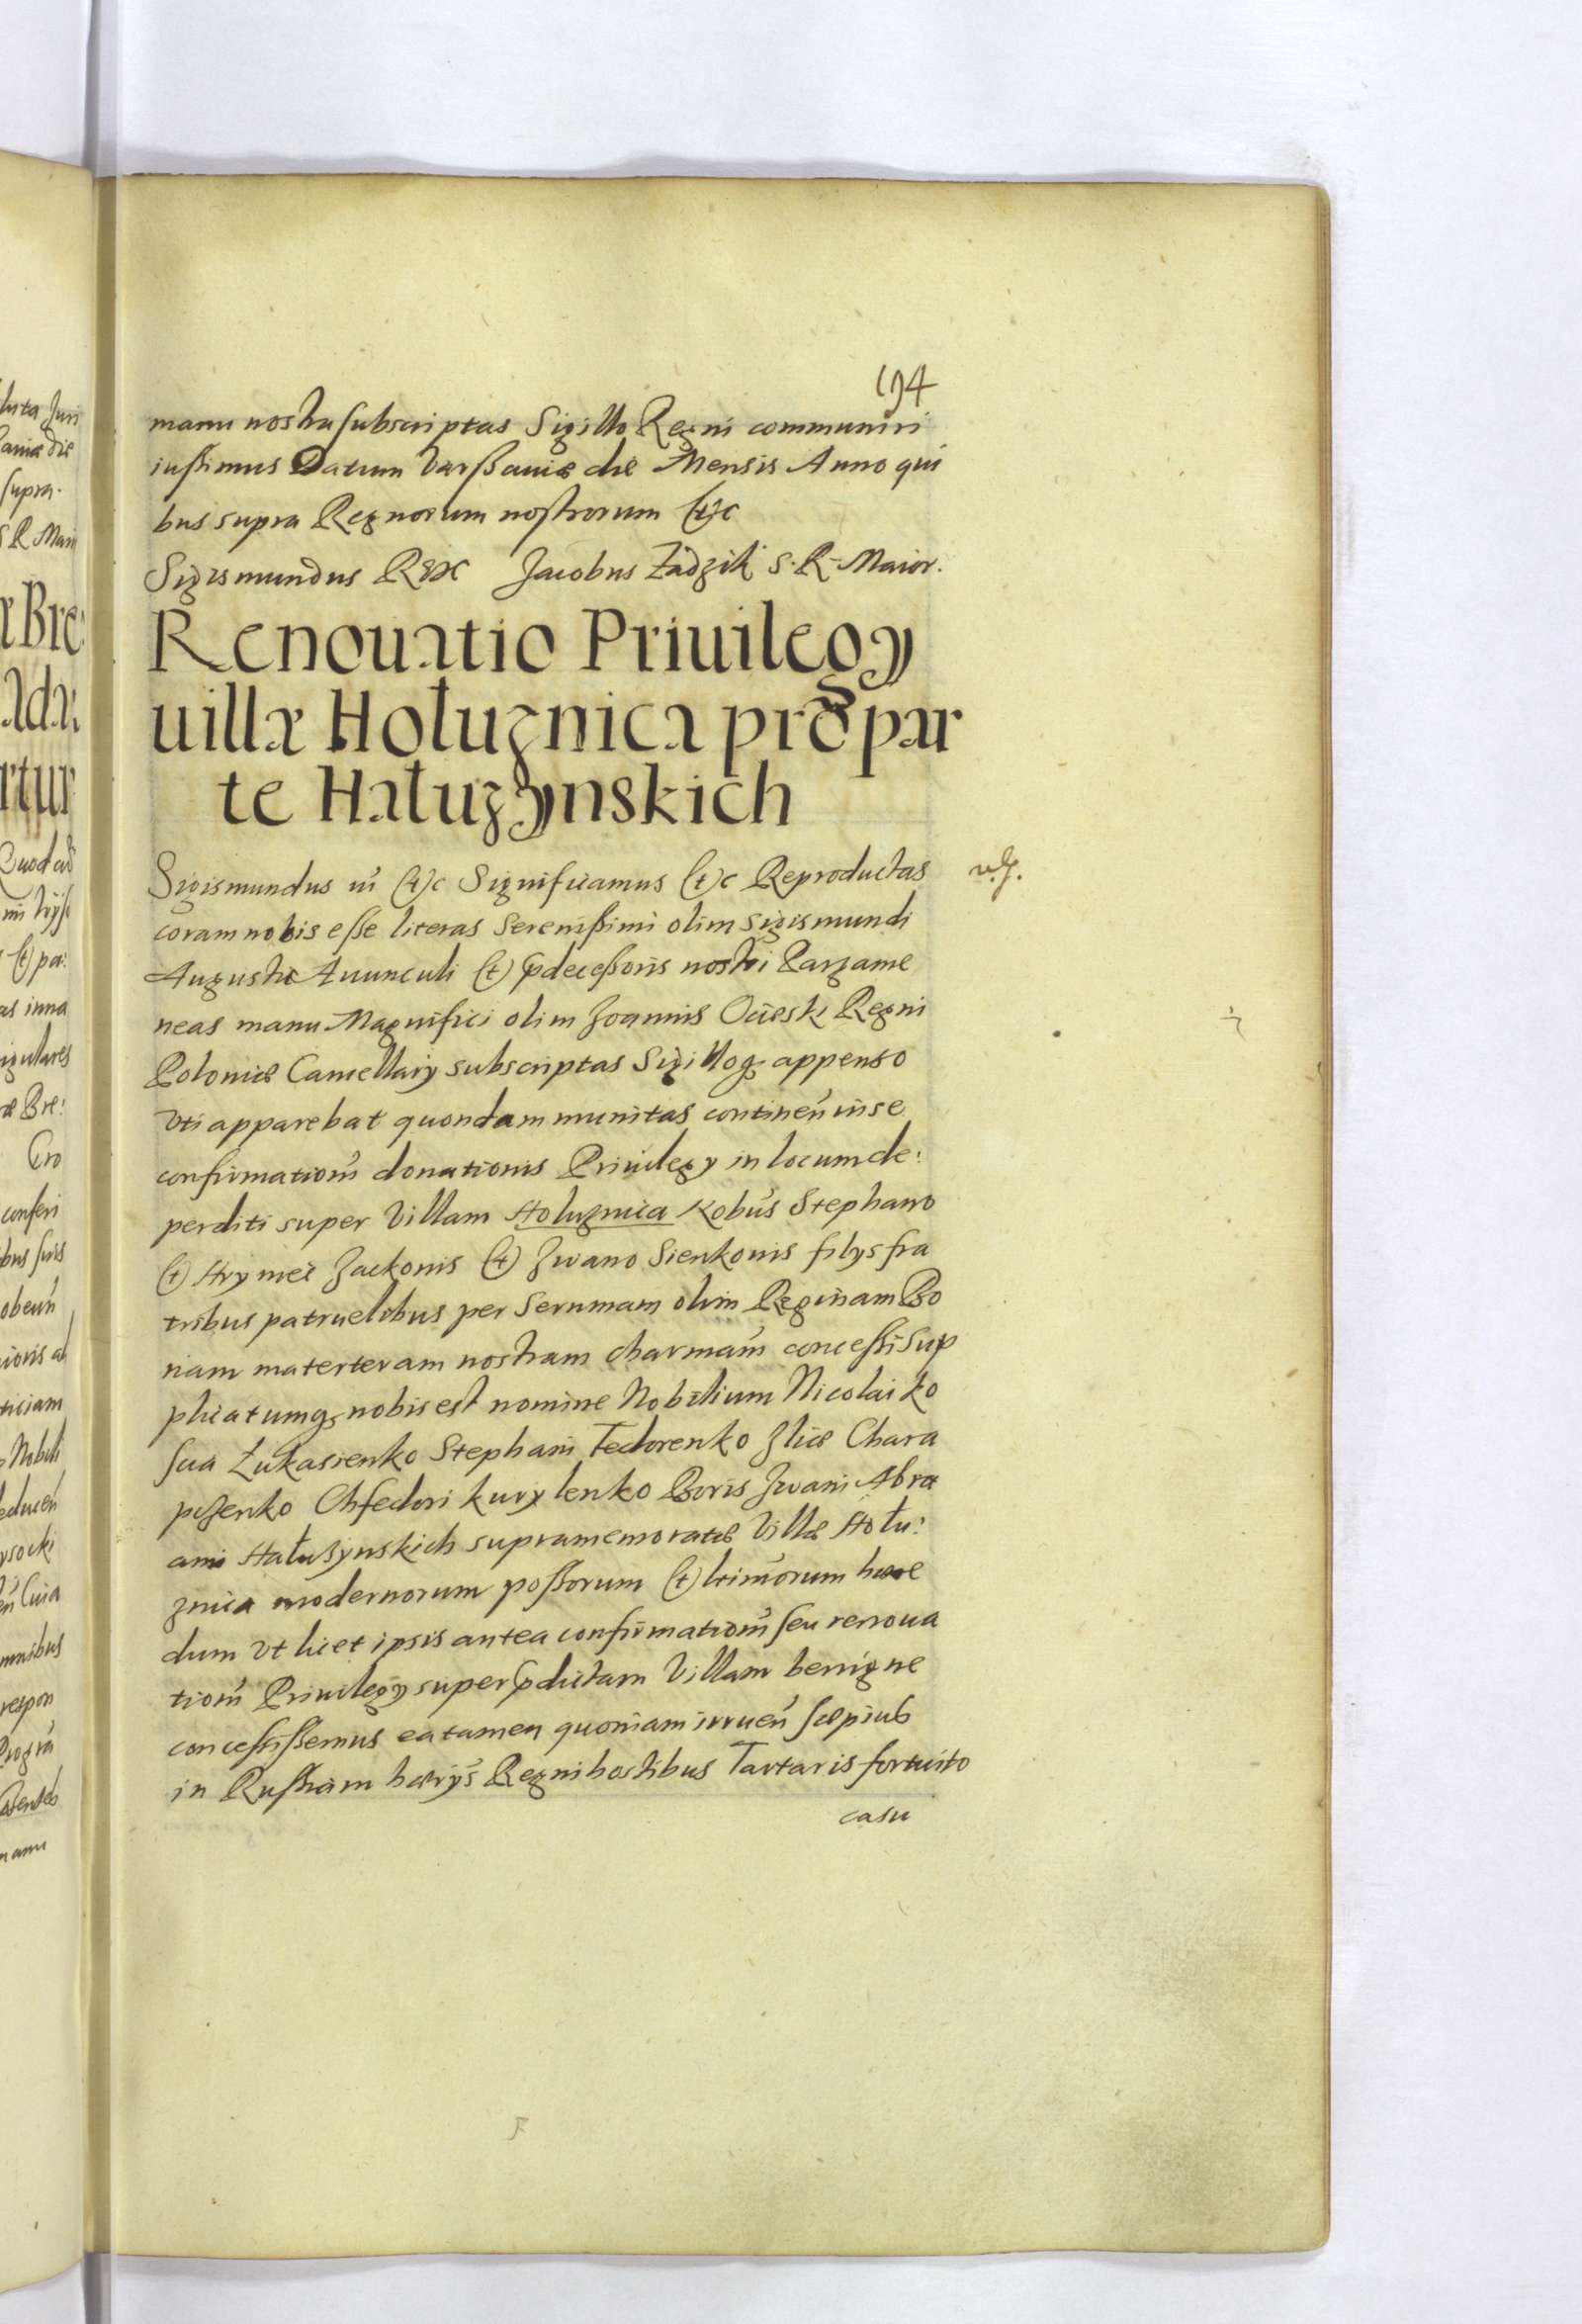 194
manu nostra subscriptas Sigillo Regni communiri
iussimus Datum Varssaviæ die Mensis Anno qui
bus supra Regnorum nostrorum (et)c
Sigismundus REX Jacobus Zadzik S. R. Maior.
Renouatio Priuilegÿ
uillæ Hołuznica pro par
te Hałuzÿnskich
Sigismundus (et)c Significamus (et)c Reproductas
coram nobis esse literas Serenissimi olim Sigismundi
Augusti Auunculi (et) Pdecessoris nostri Pargame
neas manu Magnifici olim Joannis Ocieski Regni
Poloniæ Cancellarÿ subscriptas Sigilloq; appenso
Vti apparebat quondam munitas continen̄ in se
confirmationem̄ donationis Priuilegÿ in locum de:
perditi super Villam Holuznica Nobus̄ Stephano
(et) Hrymei Jackonis (et) Jwano Sienkonis filÿs fra
tribus patruelibus per Sernmam olim Reginam Bo
nam materteram nostram charmam̄ concessi Sup
plicatumq; nobis est nomine Nobilium Nicolai ko
ssa Łukasienko Stephani Fedorenko Jliæ Chara
pczenko Chfedori kurylenko Boris Jwani Abra
ami Hałuzynskich supramemoratæ Villæ Hołu:
znica modernorum possorum (et) ltimorum hære
dum Vt licet ipsis antea confirmationm̄ seu renoua
tionm̄ Priuilegÿ super Pdictam Villam benigne
concessissemus ea tamen quoniam irruen̄ sæpius
in Russiam Regni hostibus Tartaris fortuito
casu